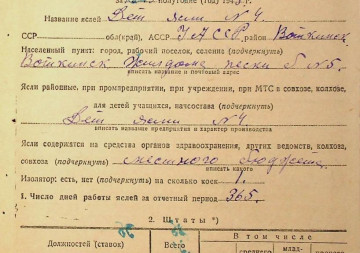 полугодие (год) 194
Название яслей Дет ясли №4
ССР обл(край), АССР УАССР район Воткинск
Населенный пункт: город, рабочий поселок, селение (подчеркнуть)
Воткинск пески №5.
вписать название и почтовый адрес
Ясли районные, при промпредприятии, при учреждении, при МТС в совхозе, колхозе,
для детей учащихся, начсостава (подчеркнуть)
Дет ясли №4
вписать название предприятия и характер производства
Ясли содержатся на средства органов здравоохранения, других ведомств, колхоза,
совхоза (подчеркнуть) местного бюджета
вписать какого
Изолятор: есть, нет (подчеркнуть) на сколько коек 1.
1. Число дней работы яслей за отчетный период 365.
2. Штаты *)
Должностей (ставок)
Всего
В том числе
среднего
млад-
прочего